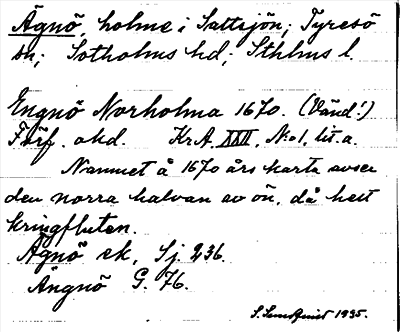 Ägnö, holme i Saltsjön; Tyresö
sn; Sotholms hd; Sthlms l.
Engnö Norholma 1670. (Vänd!)
Förf. okd. KrA XXII, No 1, lit. a.
Namnet å 1670 års karta avser
den norra halvan av ön, då helt
kringfluten.
Ägnö ek, Sj 236.
Ängnö G. 76.
S. Sundqvist 1935.